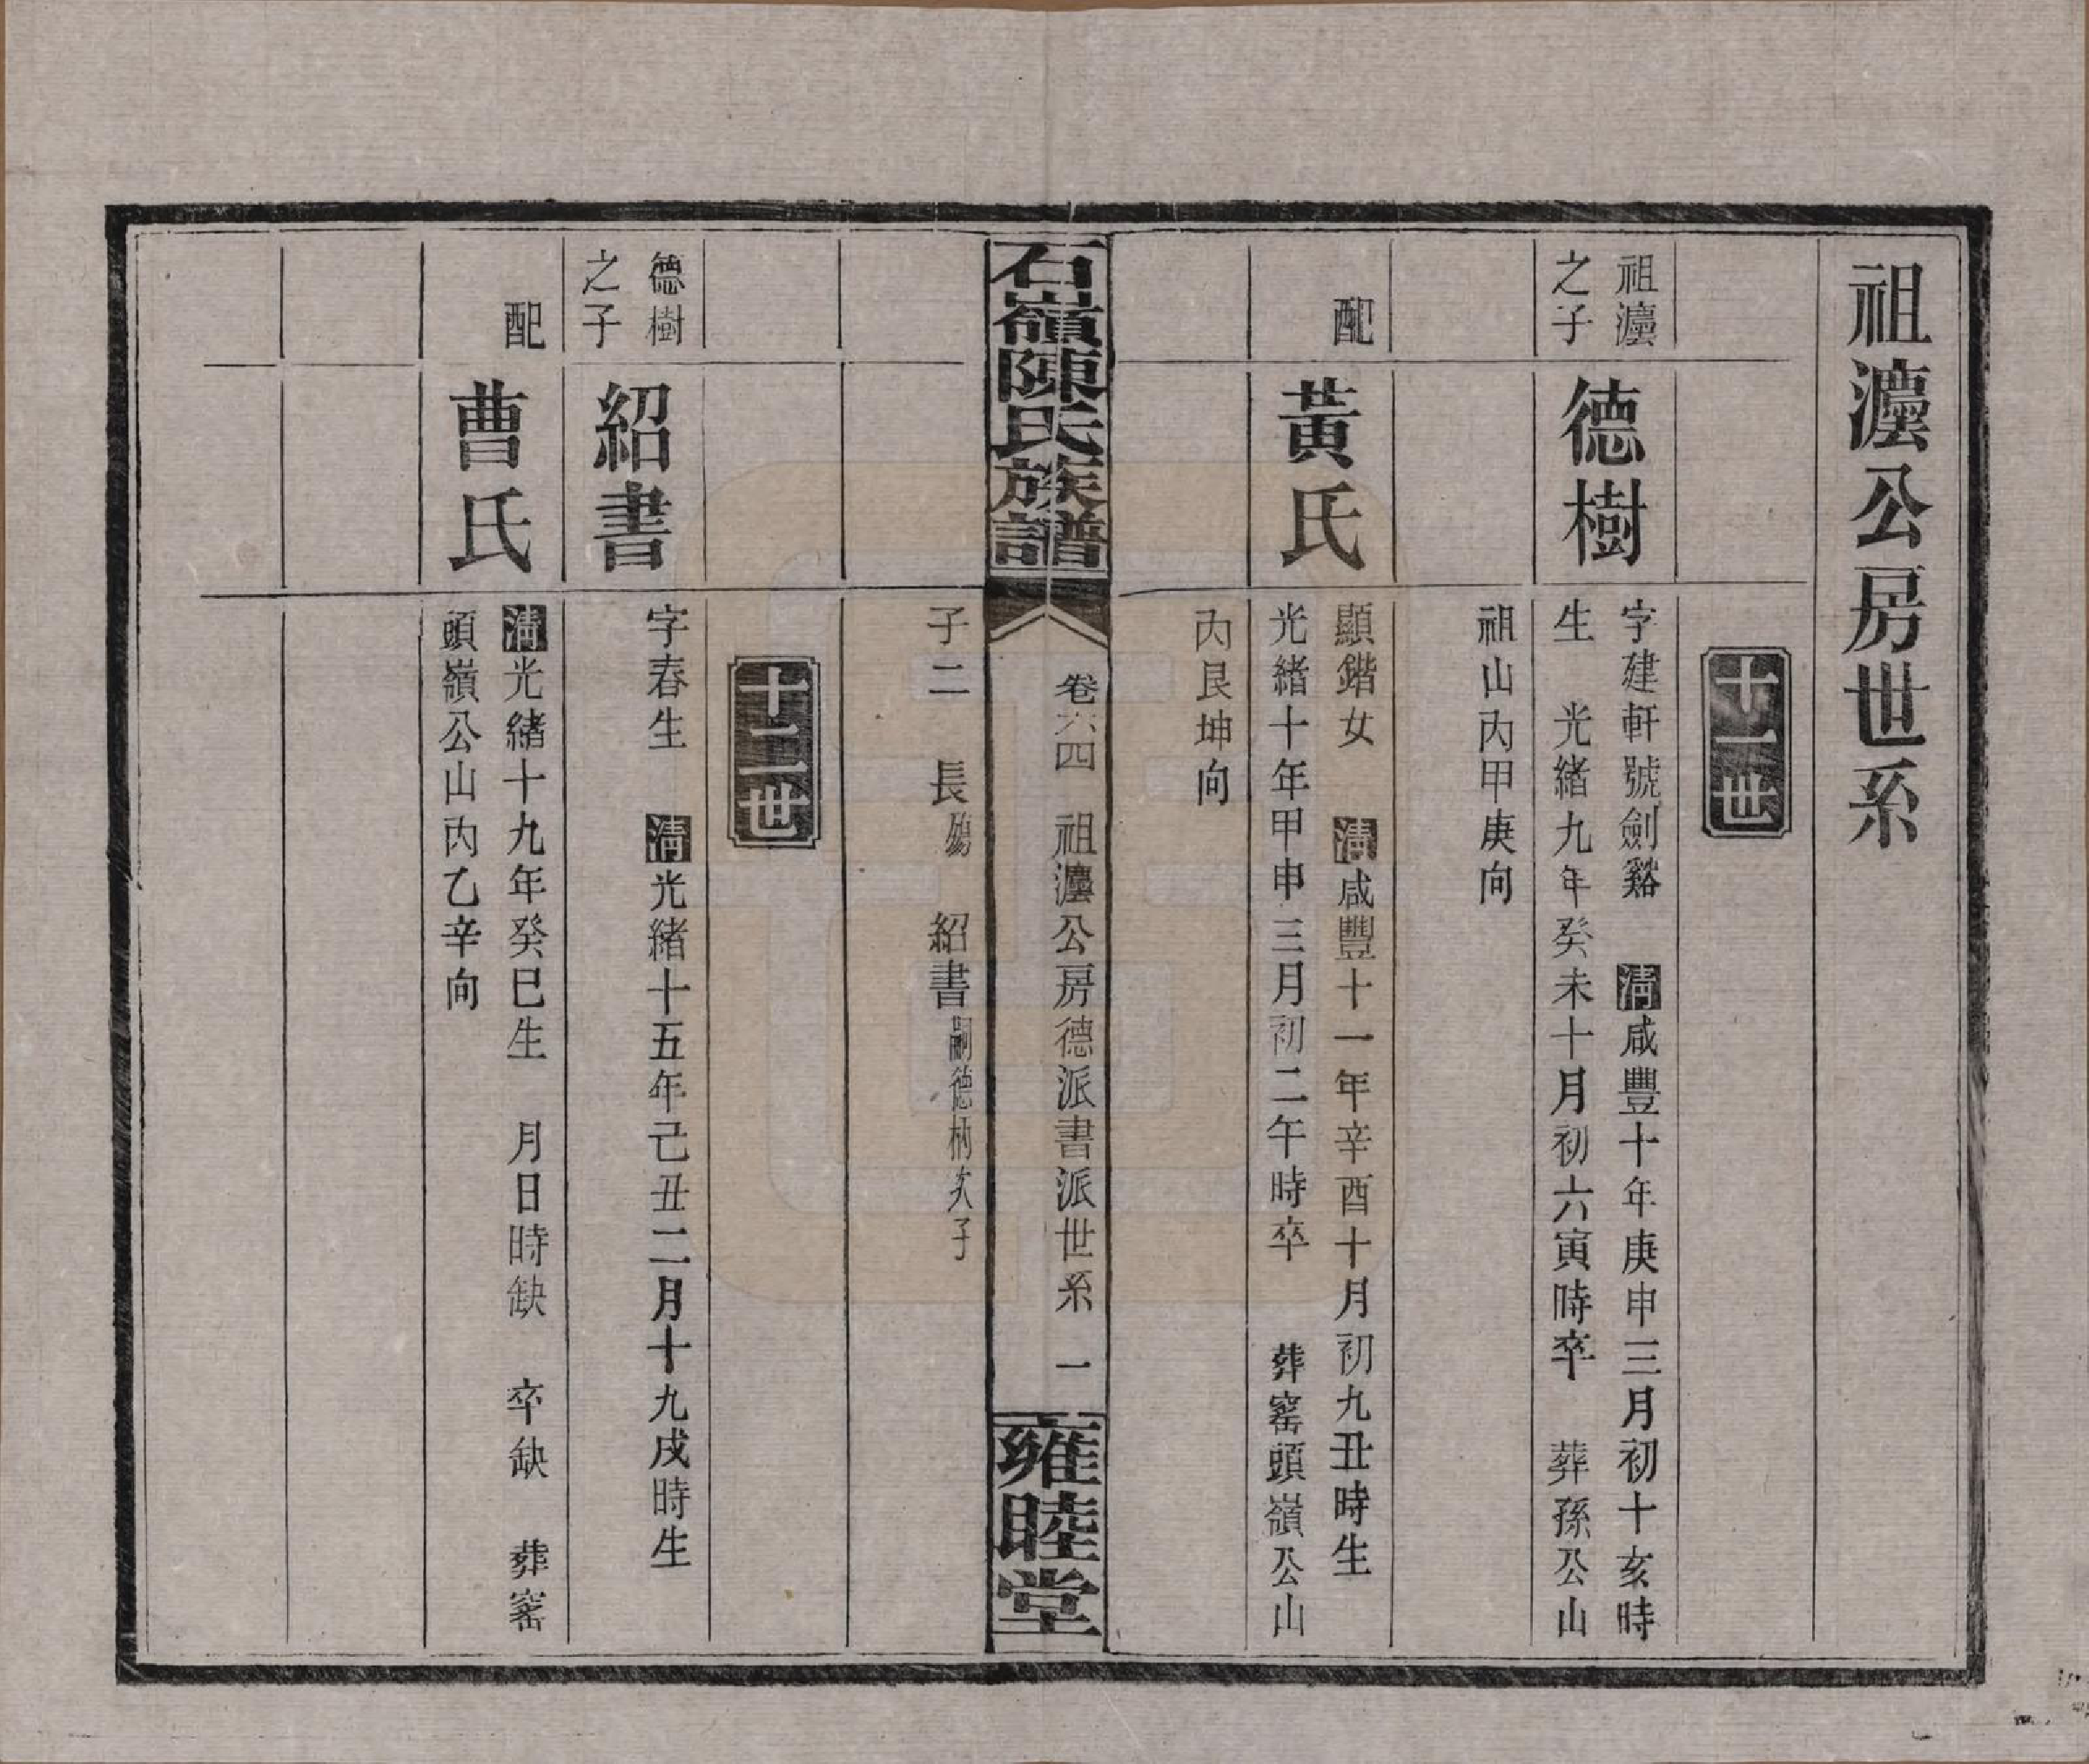 祖灋公房世系
十一世
祖灋
之子
德樹
字建軒號劍谿　清咸豐十年庚申三月初十亥時
生　光緒九年癸未十月初六寅時卒　葬孫公山
祖山內甲庚向
配
黃氏
顯鍇女　清咸豐十一年辛酉十月初九丑時生
光緒十年甲申三月初二午時卒　葬窰頭嶺公山
內艮坤向
石嶺陳氏族譜
卷六四　祖灋公房德派書派世系　一
雍睦堂
子二　長殤　紹書嗣德柄次子
十二世
德樹
之子
紹書
字春生　清光緒十五年己丑二月十九戌時生
配
曹氏
清光緒十九年癸巳生　月日時缺　卒缺　葬窰
頭嶺公山內乙辛向